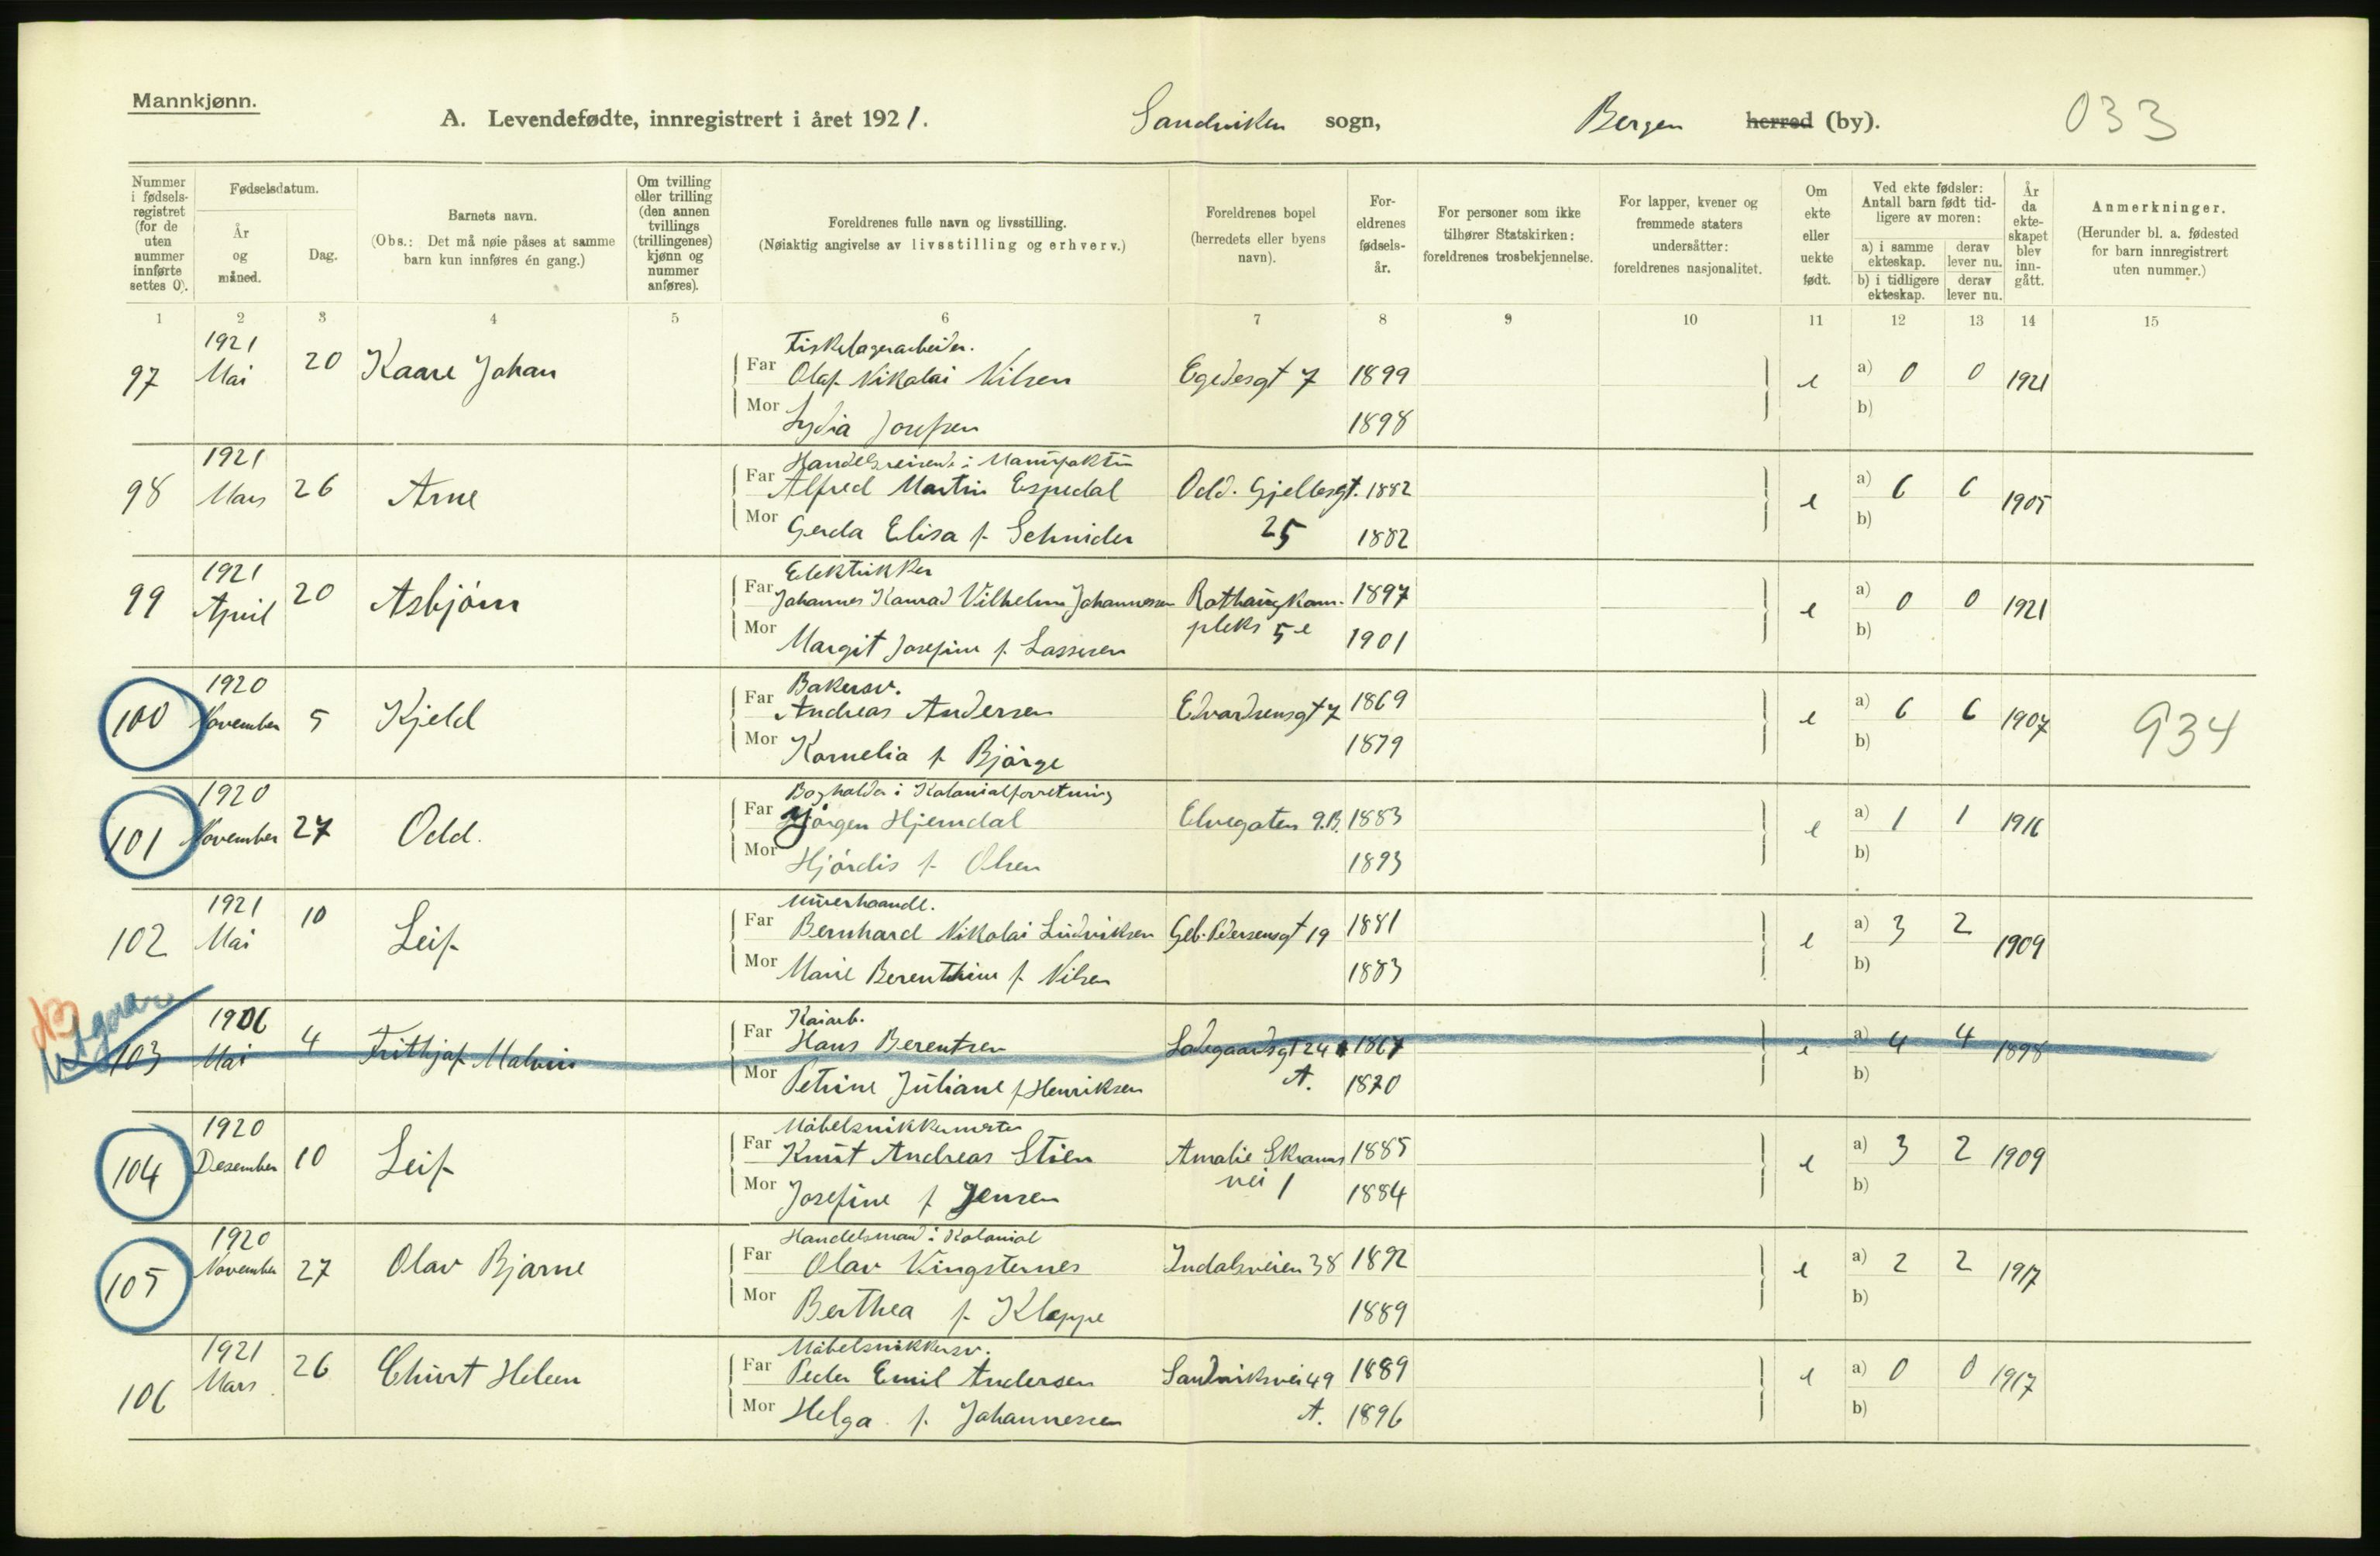 Mannkjønn.
A. Levendefødte, innregistrert i året 1921.
Sandviken sogn,
Bergen herred (by).
033
Nummer i fødsels-registret (for de uten nummer innførte settes 0).
Fødselsdatum.
År og måned.
Dag.
Barnets navn.
(Obs.: Det må nøie påses at samme barn kun innføres én gang.)
Om tvilling eller trilling (den annen tvillings (trillingenes) kjønn og nummer anføres).
Foreldrenes fulle navn og livsstilling.
(Nøiaktig angivelse av livsstilling og erhverv.)
Foreldrenes bopel (herredets eller byens navn).
For-eldrenes fødsels-år.
For personer som ikke tilhører Statskirken: foreldrenes trosbekjennelse.
For lapper, kvener og fremmede staters undersåtter: foreldrenes nasjonalitet.
Om ekte eller uekte født.
Ved ekte fødsler: Antall barn født tid-ligere av moren:
a) i samme ekteskap.
derav lever nu.
b) i tidligere ekteskap.
derav lever nu.
År da ekte-skapet blev inn-gått.
Anmerkninger.
(Herunder bl. a. fødested for barn innregistrert uten nummer.)
1 2 3 4 5 6 7 8 9 10 11 12 13 14 15
1921
Fiskelagerarbeider.
97 Mai 20 Kaare Johan Far Olaf Nikolai Nilsen Egedesgt 7 1899 e a) 0 0 1921
Mor Lydia Josefsen 1898 b)
1921
Handelsreisende i Manufaktur
98 Mars 26 Arne Far Alfred Martin Espedal Odd. Gjellesgt. 1882 e a) 6 6 1905
Mor Gerda Elisa f. Schnider 25 1882 b)
1921
Elektrikker
99 April 20 Asbjörn Far Johannes Konrad Vilhelm Johannessen Rothaugkom- 1897 e a) 0 0 1921
Mor Margit Josefine f. Lassesen pleks 5 e 1901 b)
1920
Bakersv.
100 November 5 Kjeld Far Andreas Andersen Edvardsensgt 7 1869 e a) 6 6 1907 934
Mor Kornelia f. Bjørge 1879 b)
1920
Bogholder i Kolonialforretning
101 November 27 Odd. Far Jörgen Hjemdal Elvegaten 9.B. 1883 e a) 1 1 1916
Mor Hjördis f. Olsen 1893 b)
1921
Murerhaandl.
102 Mai 10 Leif Far Bernhard Nikolai Ludviksen Geb. Pedersensgt 19 1881 e a) 3 2 1909
Mor Marie Berenthine f. Nilsen 1883 b)
NB
Utgaar
1906
Kaiarb.
103 Mai 4 Frithjof Malvin Far Hans Berentsen Ladegaardsgt 24 1867 e a) 4 4 1898
Mor Petrine Juliane f. Henriksen A. 1870 b)
1920
Möbelsnikkermester
104 Desember 10 Leif Far Knut Andreas Stien Amalie Skrams 1885 e a) 3 2 1909
Mor Josefine f. Jensen vei 1 1884 b)
1920
Handelsmand i Kolonial
105 November 27 Olav Bjarne Far Olav Vingsternes Indalsveien 38 1892 e a) 2 2 1917
Mor Berthea f. Kleppe 1889 b)
1921
Möbelsnikkersv.
106 Mars 26 Churt Heleen Far Peder Emil Andersen Sandviksvei 49 1889 e a) 0 0 1917
Mor Helga f. Johannessen A. 1896 b)